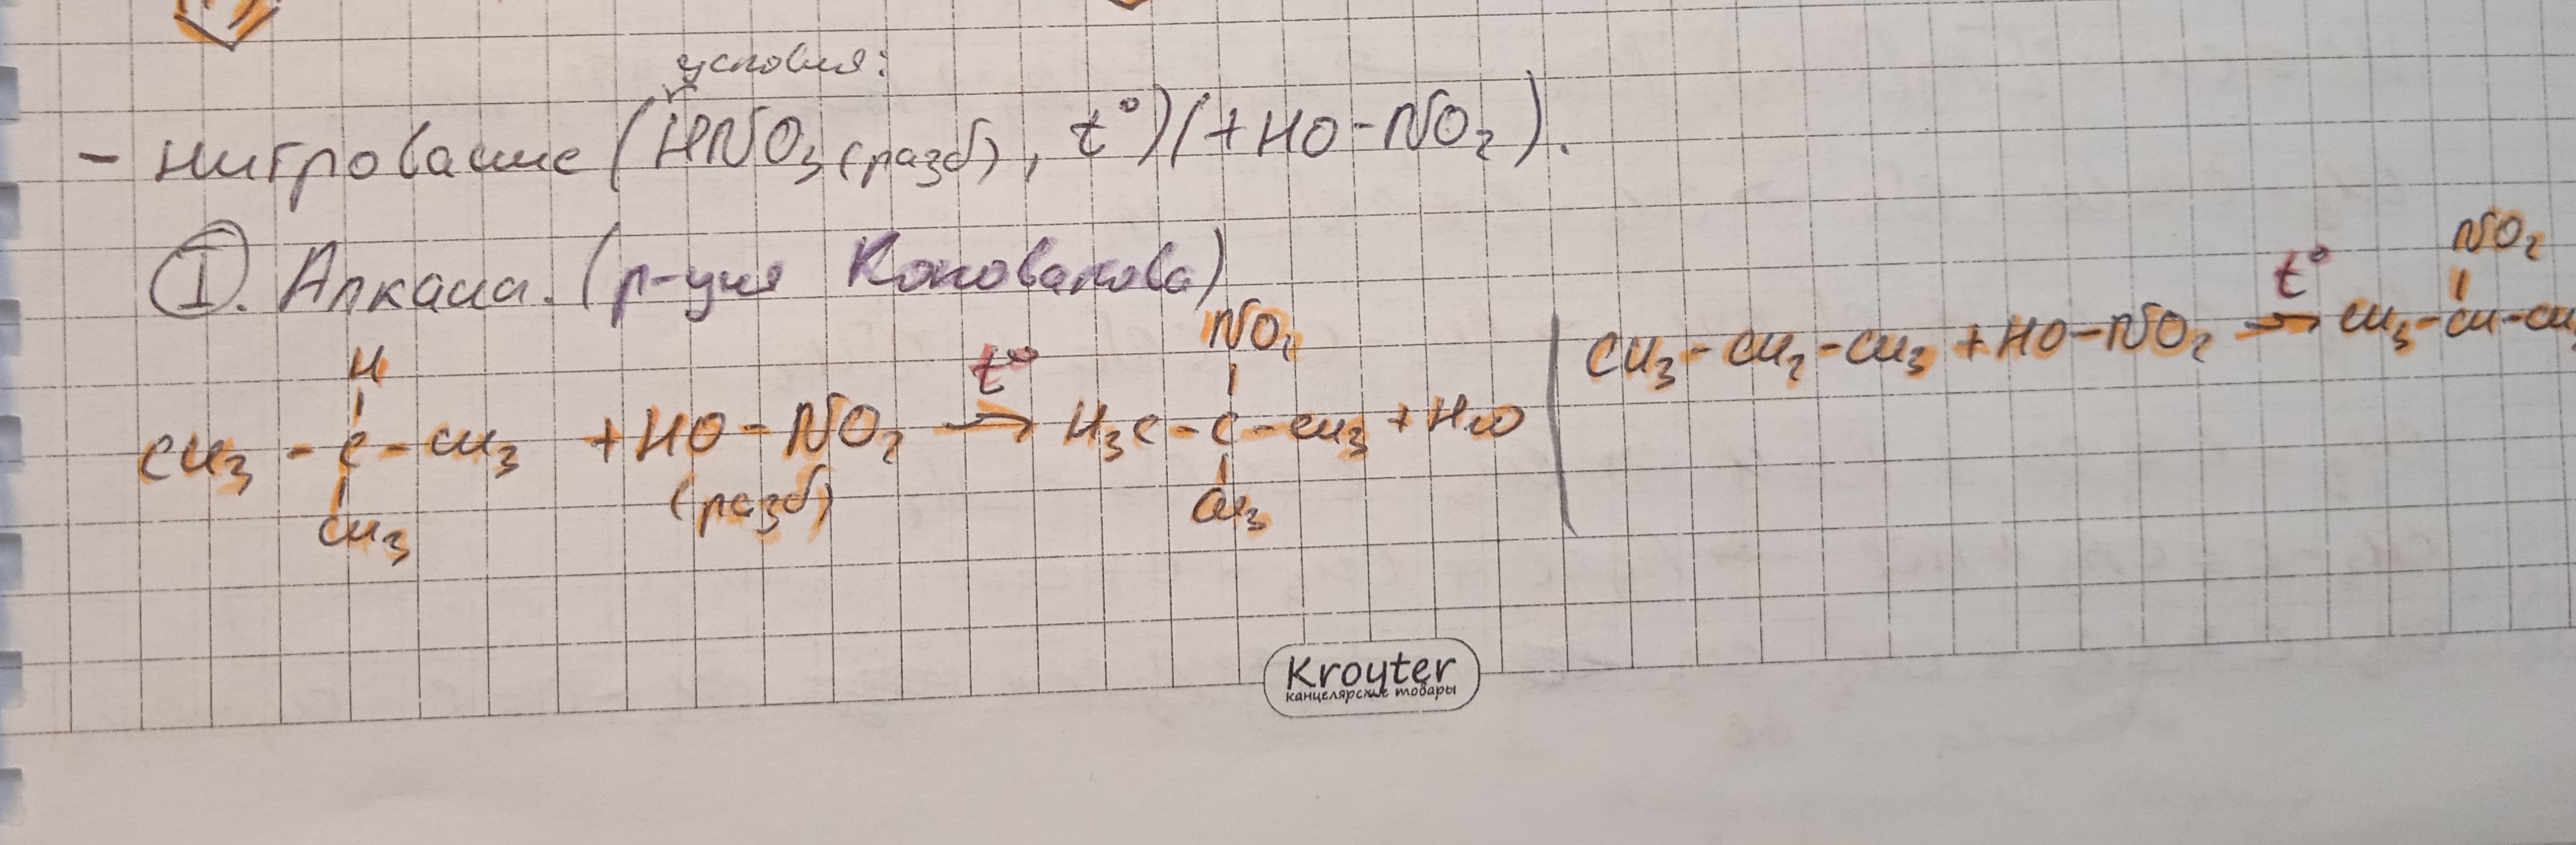 условия:
- нитрование (HNO₃ (разб), t°) (+HO-NO₂).
I. Алканы. (р-ция Коновалова)
CH₃ - C(H)(CH₃) - CH₃ + HO - NO₂ (разб) →(t°) H₃C - C(NO₂)(CH₃) - CH₃ + H₂O
CH₃ - CH₂ - CH₃ + HO - NO₂ →(t°) CH₃ - CH(NO₂) - CH
Kroyter
канцелярские товары